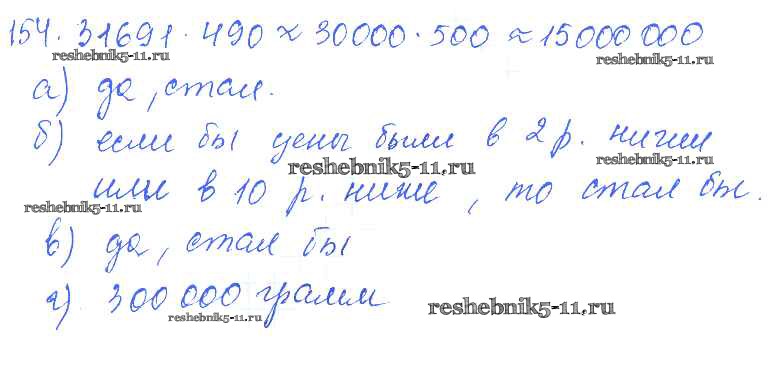 154. 31691 · 490 ≈ 30000 · 500 ≈ 15000 000
reshebnik5-11.ru reshebnik5-11.ru
а) да, стал.
б) если бы цены были в 2 р. ниже
reshebnik5-11.ru reshebnik5-11.ru
или в 10 р. ниже, то стал бы.
reshebnik5-11.ru
в) да, стал бы
г) 300 000 грамм
reshebnik5-11.ru reshebnik5-11.ru